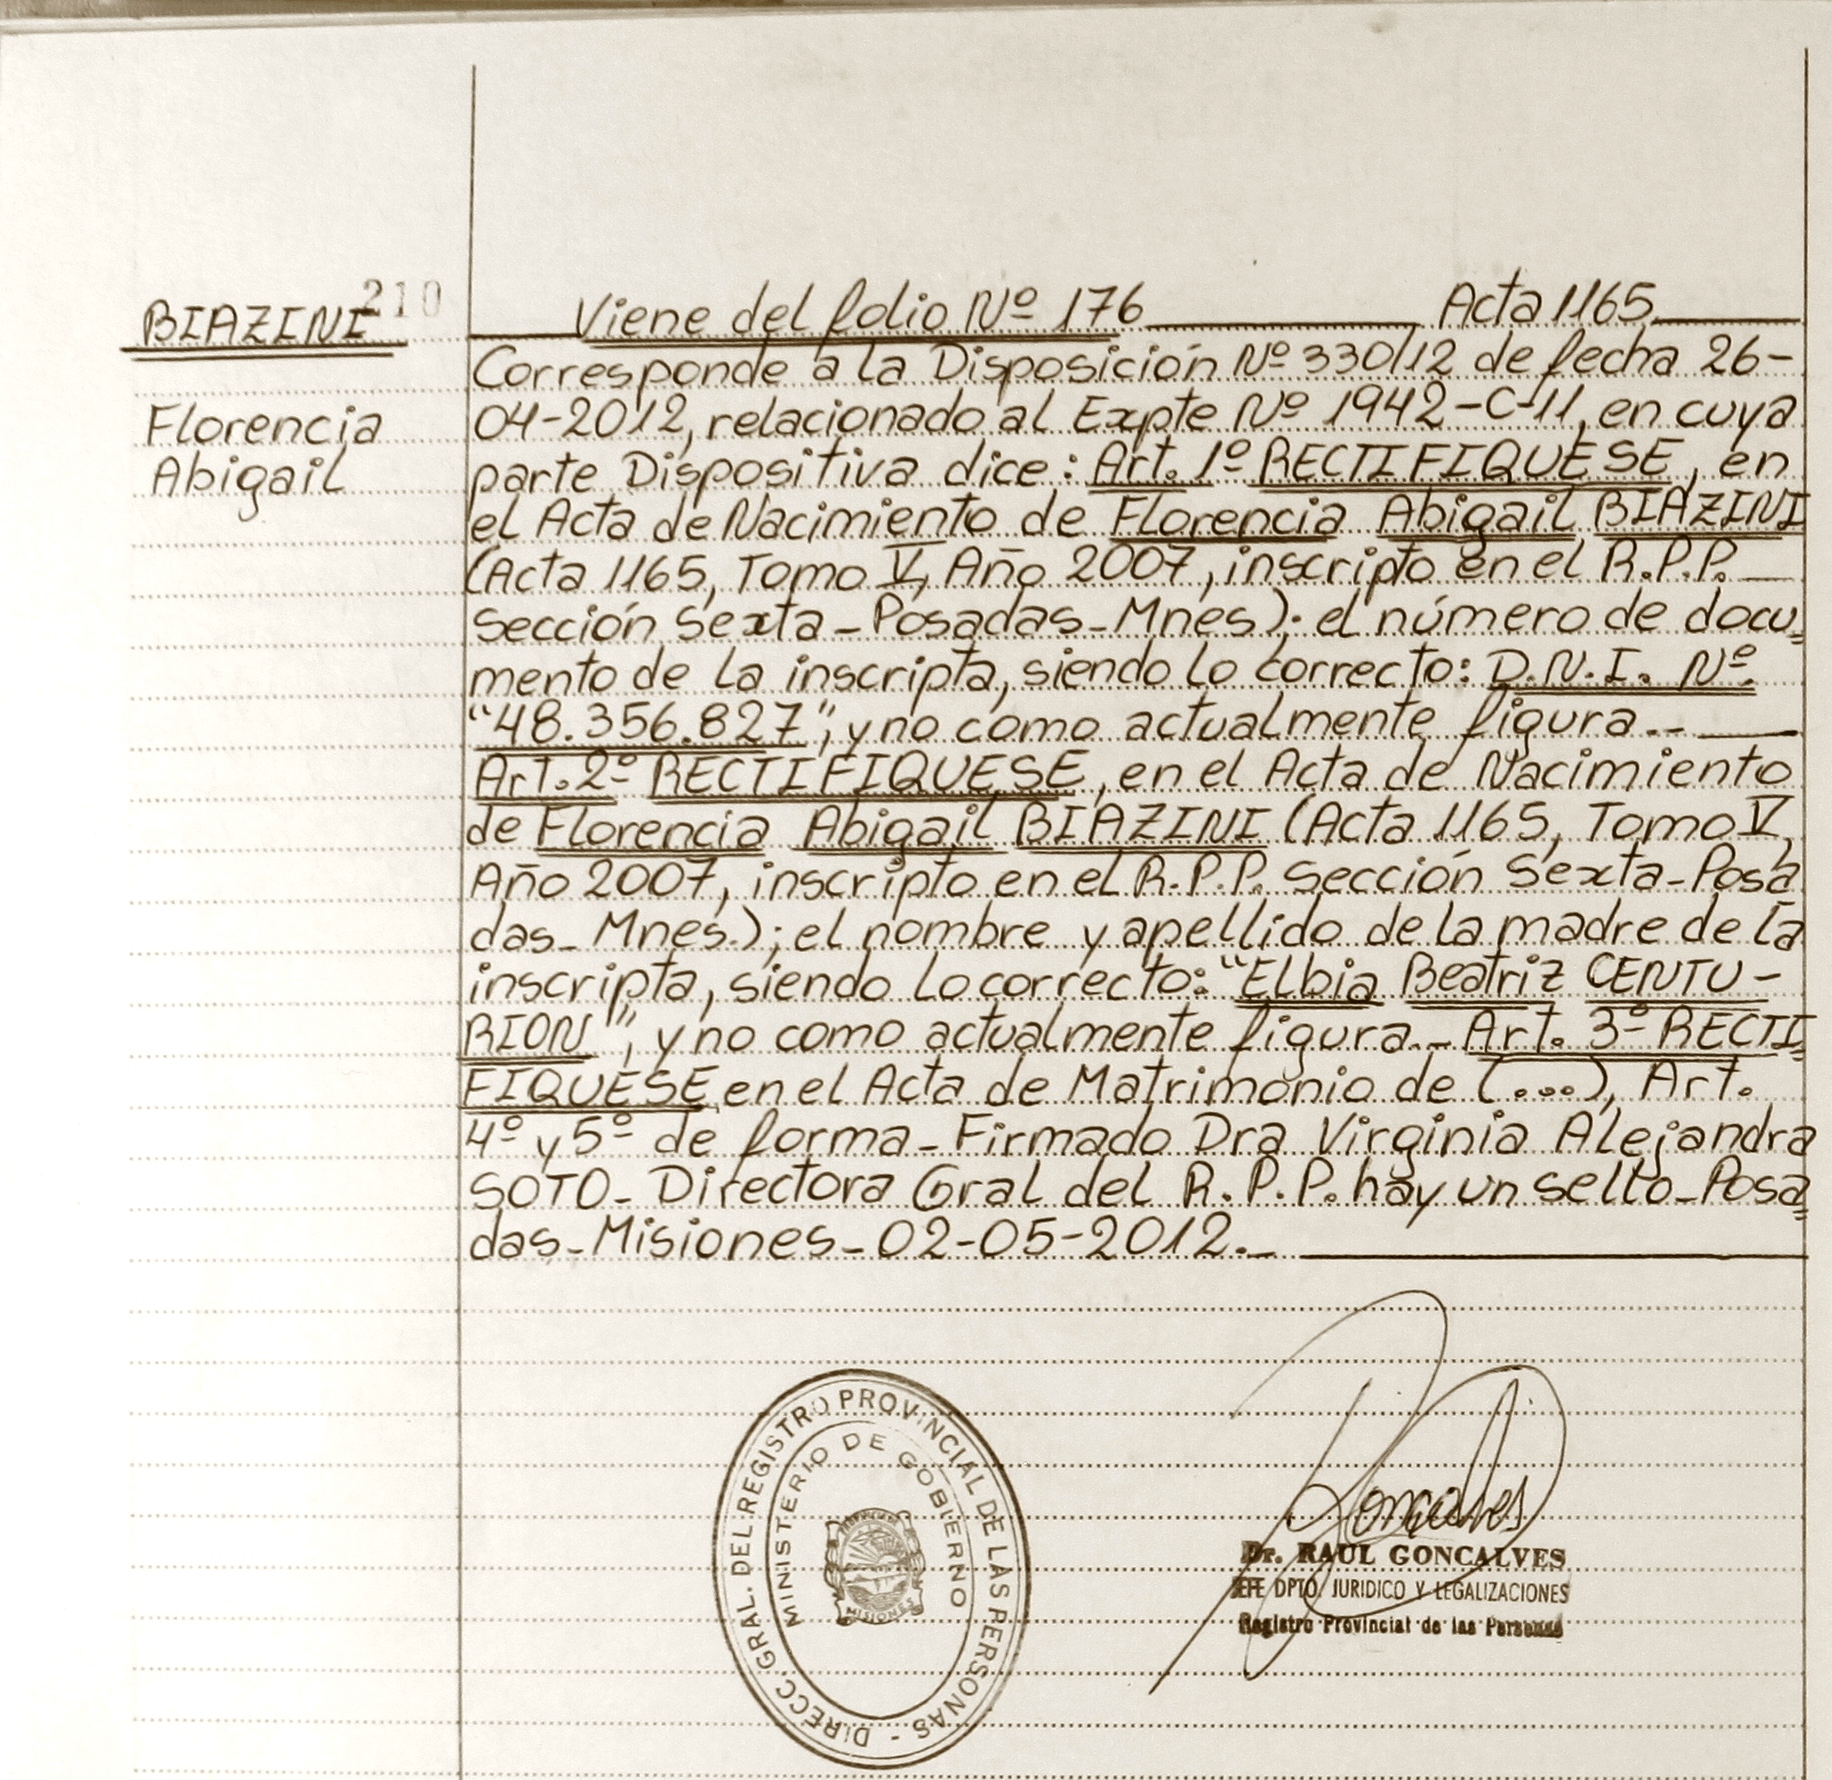 210
BIAZINI
Florencia
Abigail
Viene del folio Nº 176 Acta 1165
Corresponde a la Disposición Nº 330/12 de fecha 26-
04-2012, relacionado al Expte Nº 1942-C-11, en cuya
parte Dispositiva dice: Art. 1º RECTIFIQUESE, en
el Acta de Nacimiento de Florencia Abigail BIAZINI
(Acta 1165, Tomo V, Año 2007, inscripto en el R.P.P.
Sección Sexta-Posadas-Mnes); el número de docu=
mento de la inscripta, siendo lo correcto: D.N.I. Nº
"48.356.827", y no como actualmente figura.-
Art. 2º RECTIFIQUESE, en el Acta de Nacimiento
de Florencia Abigail BIAZINI (Acta 1165, Tomo V,
Año 2007, inscripto en el R.P.P. Sección Sexta-Posa
das-Mnes.); el nombre y apellido de la madre de la
inscripta, siendo lo correcto: "Elbia Beatriz CENTU-
RION", y no como actualmente figura.- Art. 3º RECTI=
FIQUESE en el Acta de Matrimonio de (...), Art.
4º y 5º de forma-Firmado Dra Virginia Alejandra
SOTO-Directora Gral del R.P.P. hay un sello-Posa=
das-Misiones-02-05-2012.-
DIRECC. GRAL. DEL REGISTRO PROVINCIAL DE LAS PERSONAS -
MINISTERIO DE GOBIERNO
MISIONES
Goncalves
Dr. RAUL GONCALVES
JEFE DPTO. JURIDICO Y LEGALIZACIONES
Registro Provincial de las Personas